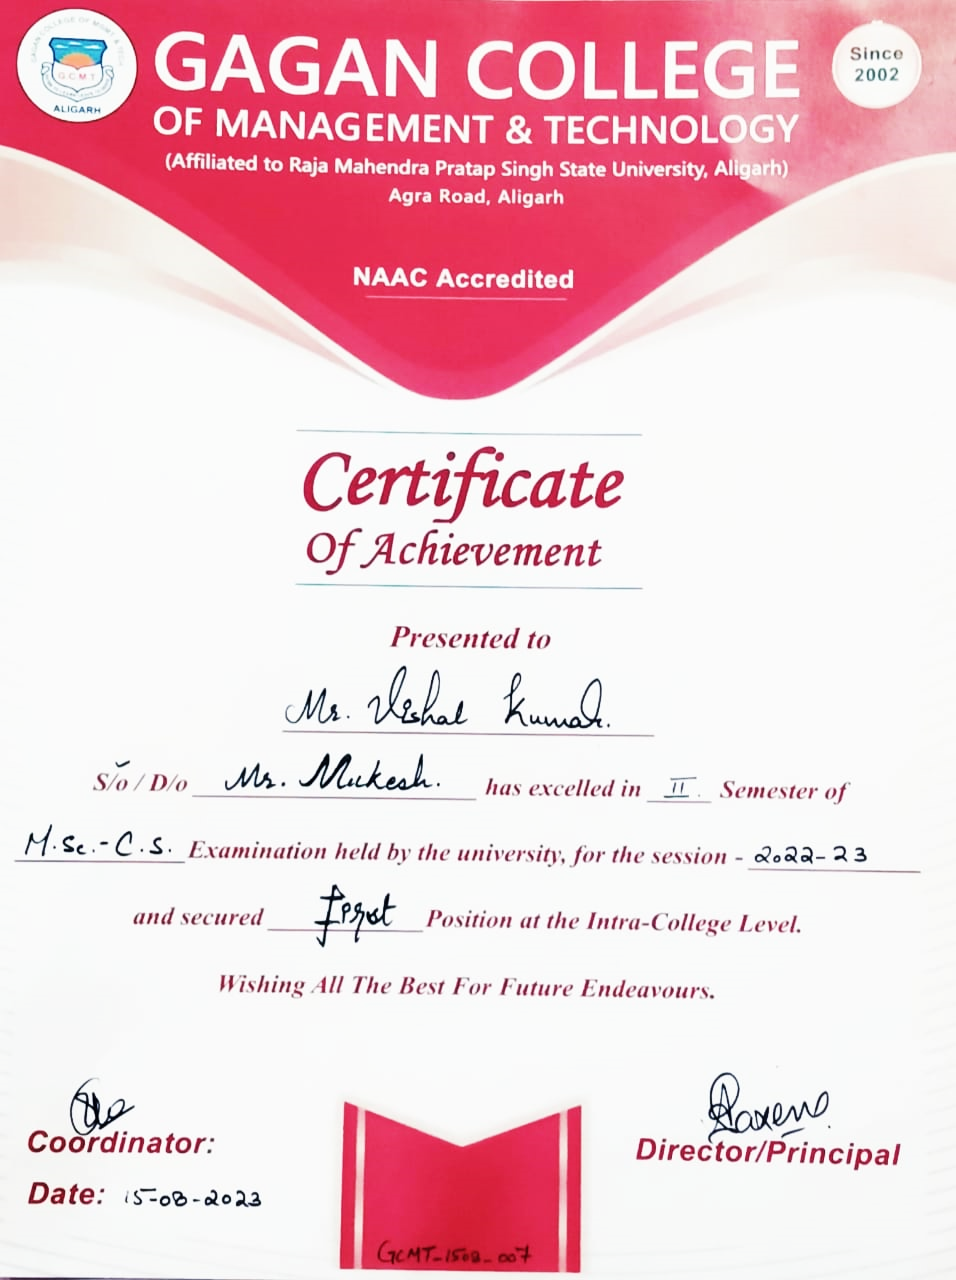 GAGAN COLLEGE OF MGMT. & TECH.
G.C.M.T
ALIGARH
GAGAN COLLEGE
Since
2002
OF MANAGEMENT & TECHNOLOGY
(Affiliated to Raja Mahendra Pratap Singh State University, Aligarh)
Agra Road, Aligarh
NAAC Accredited
Certificate
Of Achievement
Presented to
Mr. Vishal Kumar.
S/o / D/o Mr. Mukesh. has excelled in II. Semester of
M.Sc.-C.S. Examination held by the university, for the session - 2022-23
and secured First Position at the Intra-College Level.
Wishing All The Best For Future Endeavours.
Saxena
Coordinator:
Director/Principal
Date: 15-08-2023
GCMT-1508-007